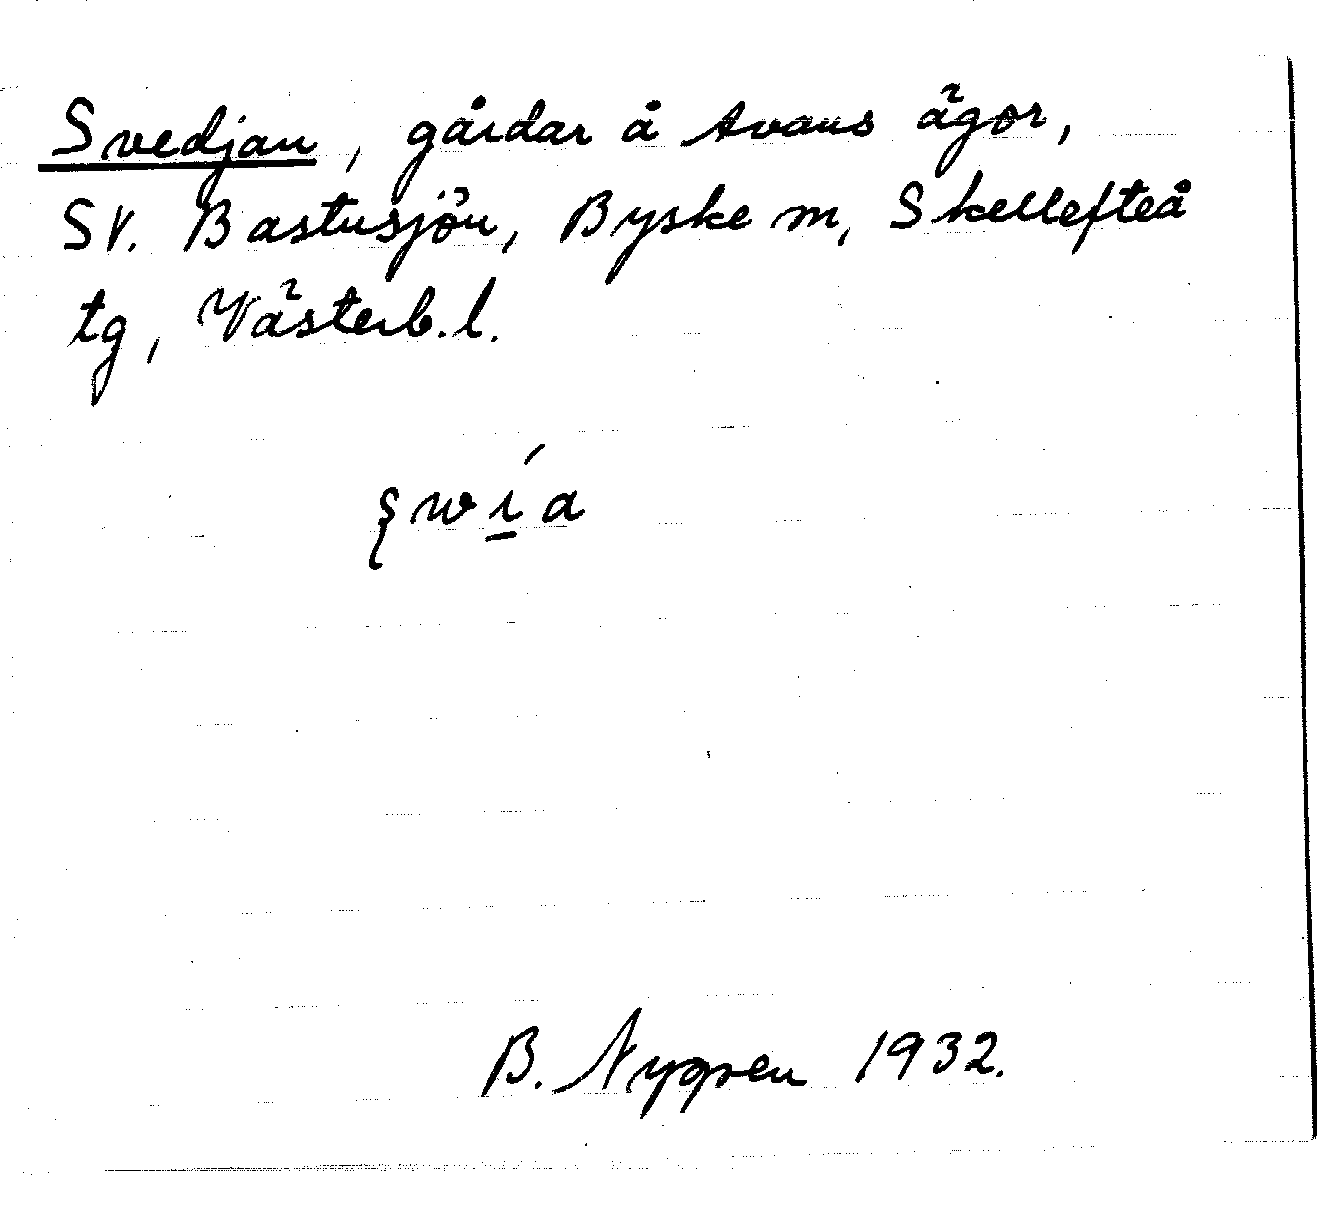 Svedjan, gårdar å Avans ägor,
SV. Bastusjön, Byske m, Skellefteå
tg, Västerb. l.
B. Nygren 1932.